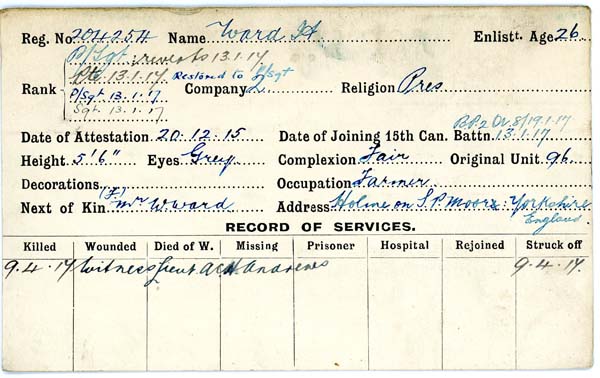 Reg. No. 204254 Name Ward H Enlistt. Age 26
P/Sgt. reverts 13.1.17
Pte. 13.1.17. Restored to P/Sgt
Rank P/Sgt 13.1.17 Company 2 Religion Pres
Sgt 13.1.17
B.P.2 Or. 8/19.1.17
Date of Attestation 20.12.15 Date of Joining 15th Can. Battn. 13.1.17
Height 5'6" Eyes Grey Complexion Fair Original Unit 96
Decorations Occupation Farmer
Next of Kin (F) Mr W Ward Address Holme on S.P. Moore Yorkshire
England
RECORD OF SERVICES.
Killed Wounded Died of W. Missing Prisoner Hospital Rejoined Struck off
9.4.17 Witness Lieut A C H Andrews 9.4.17.